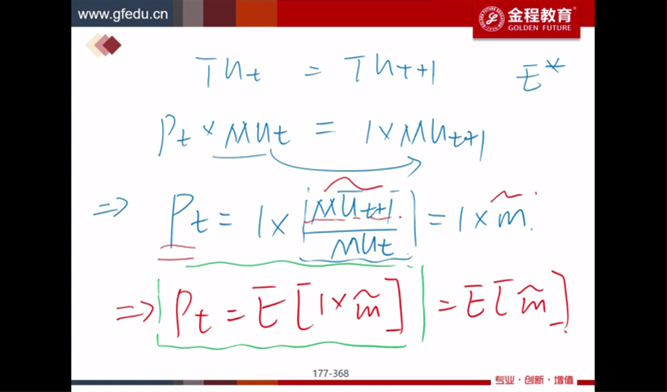 www.gfedu.cn
金程教育
GOLDEN FUTURE
TUt = TUt+1 E*
Pt × MUt = 1 × MUt+1
⇒ Pt = 1 × | MUt+1 / MUt | = 1 × m̃.
⇒ Pt = E [1 × m̃] = E[m̃]
177-368
专业·创新·增值